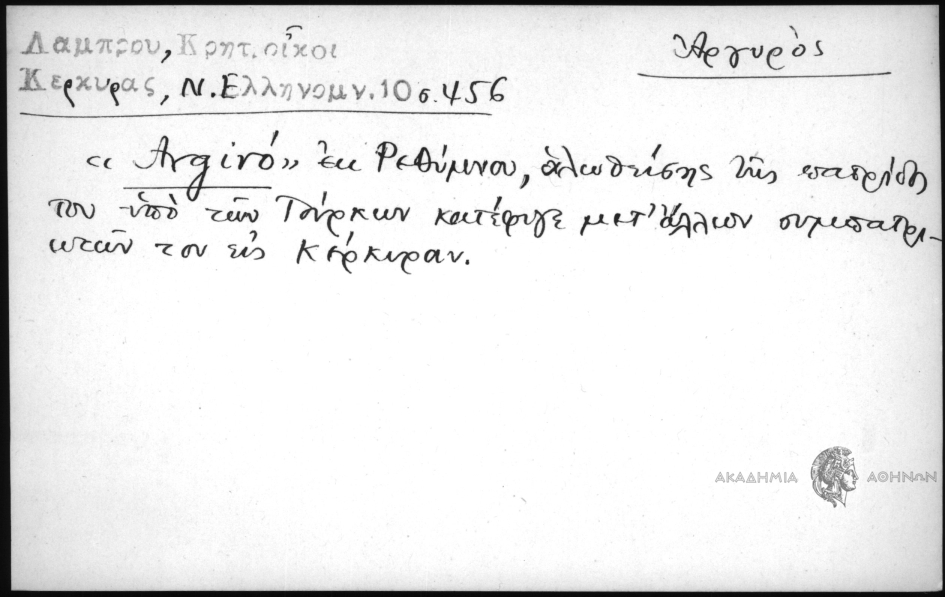 Λαμπρου, Κρητ. οἶκοι
Ἀργυρὸς
Κερκυρας, Ν. Ελληνομν. 10 σ. 456
« Arginó» ἐκ Ρεθύμνου, ἁλωθείσης τῆς πατρίδος
του ὑπὸ τῶν Τούρκων κατέφυγε μετ' ἄλλων συμπατρι-
ωτῶν του εἰς Κέρκυραν.
ΑΚΑΔΗΜΙΑ ΑΘΗΝΩΝ